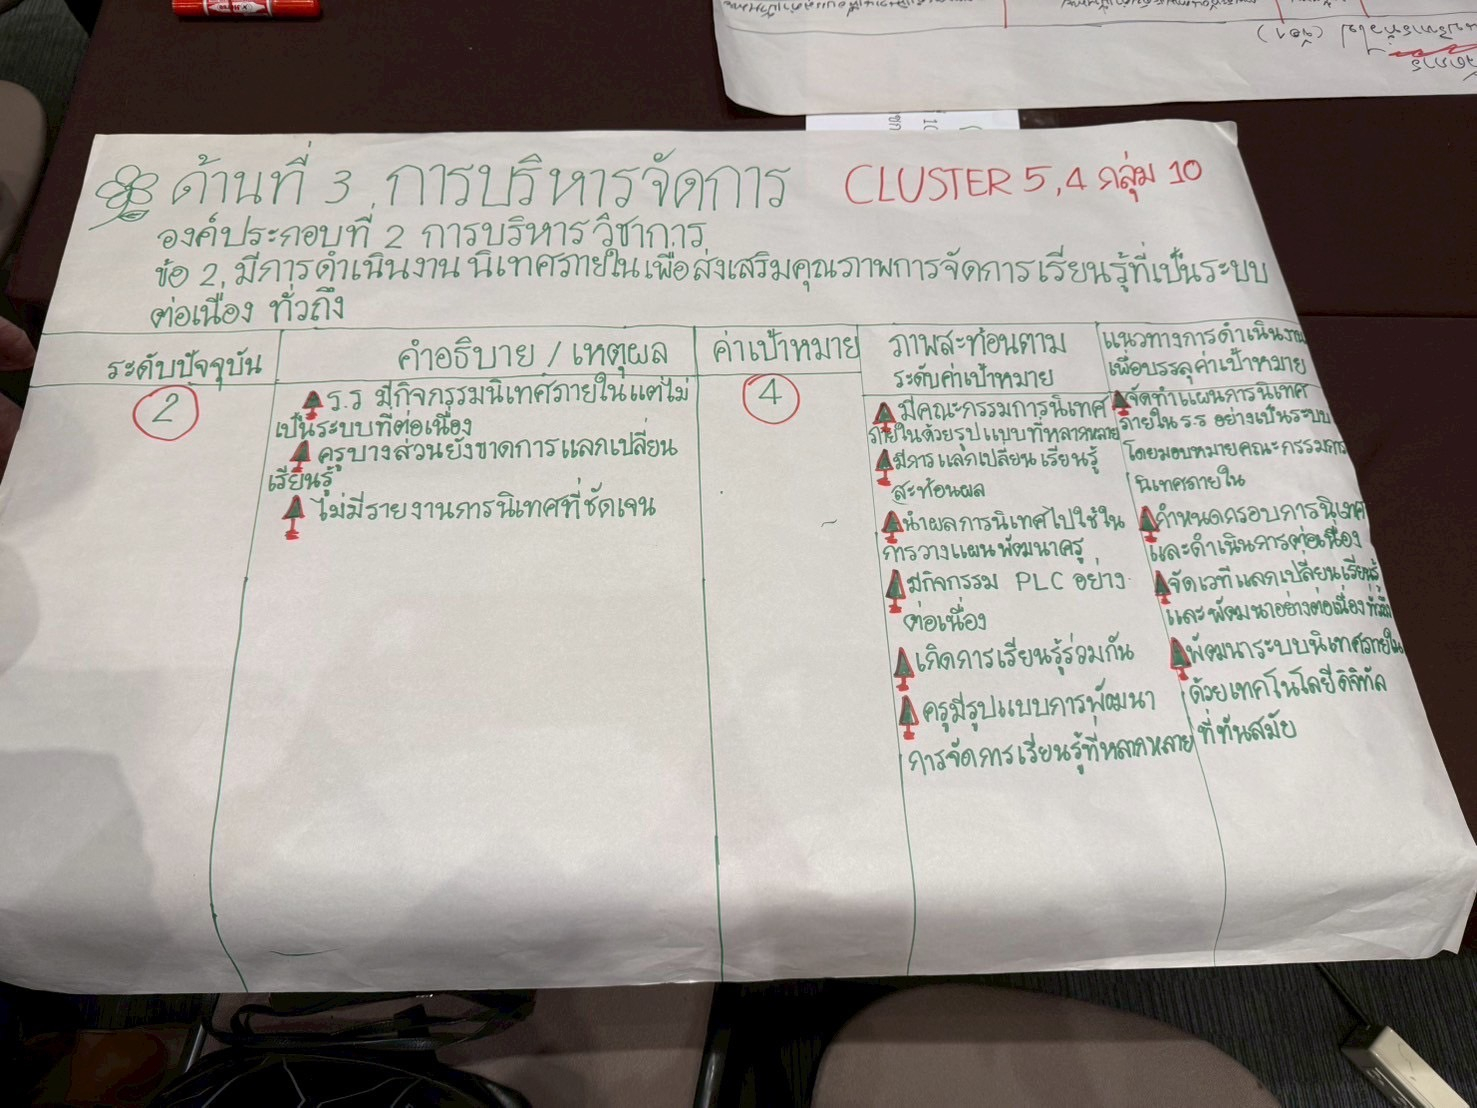 ด้านที่ 3 การบริหารจัดการ
CLUSTER 5,4 กลุ่ม 10
องค์ประกอบที่ 2 การบริหารวิชาการ
ข้อ 2 มีการดำเนินงานนิเทศภายในเพื่อส่งเสริมคุณภาพการจัดการเรียนรู้ที่เป็นระบบ
ต่อเนื่อง ทั่วถึง
ระดับปัจจุบัน
2
คำอธิบาย / เหตุผล
ร.ร มีกิจกรรมนิเทศภายในแต่ไม่
เป็นระบบที่ต่อเนื่อง
ครูบางส่วนยังขาดการแลกเปลี่ยน
เรียนรู้
ไม่มีรายงานการนิเทศที่ชัดเจน
ค่าเป้าหมาย
4
ภาพสะท้อนตาม
ระดับค่าเป้าหมาย
มีคณะกรรมการนิเทศ
ภายในด้วยรูปแบบที่หลากหลาย
มีการแลกเปลี่ยนเรียนรู้
สะท้อนผล
นำผลการนิเทศไปใช้ใน
การวางแผนพัฒนาครู
มีกิจกรรม PLC อย่าง
ต่อเนื่อง
เกิดการเรียนรู้ร่วมกัน
ครูมีรูปแบบการพัฒนา
การจัดการเรียนรู้ที่หลากหลาย
แนวทางการดำเนินงาน
เพื่อบรรลุค่าเป้าหมาย
จัดทำแผนการนิเทศ
ภายใน ร.ร อย่างเป็นระบบ
โดยมอบหมายคณะกรรมการ
นิเทศภายใน
กำหนดกรอบการนิเทศ
และดำเนินการต่อเนื่อง
จัดเวทีแลกเปลี่ยนเรียนรู้
และพัฒนาอย่างต่อเนื่อง ทั่วถึง
พัฒนาระบบนิเทศภายใน
ด้วยเทคโนโลยีดิจิทัล
ที่ทันสมัย